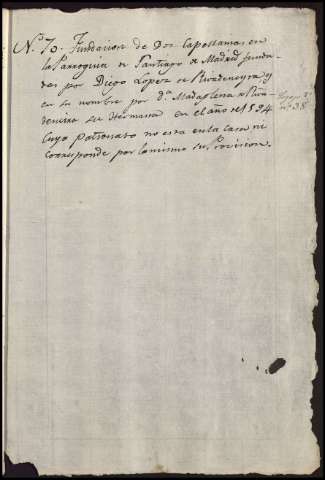 Nº 70. Fundacion de Dos Capellanias en
la Parroquia de Santiago de Madrid funda-
das por Diego Lopez de Rivadeneyra y
en su nombre por dª Madalena de Riva-
deneira su Hermana en el año de 1594
Cuyo Patronato no esta en la Casa ni
Corresponde por lo mismo su Provision.
nº 38